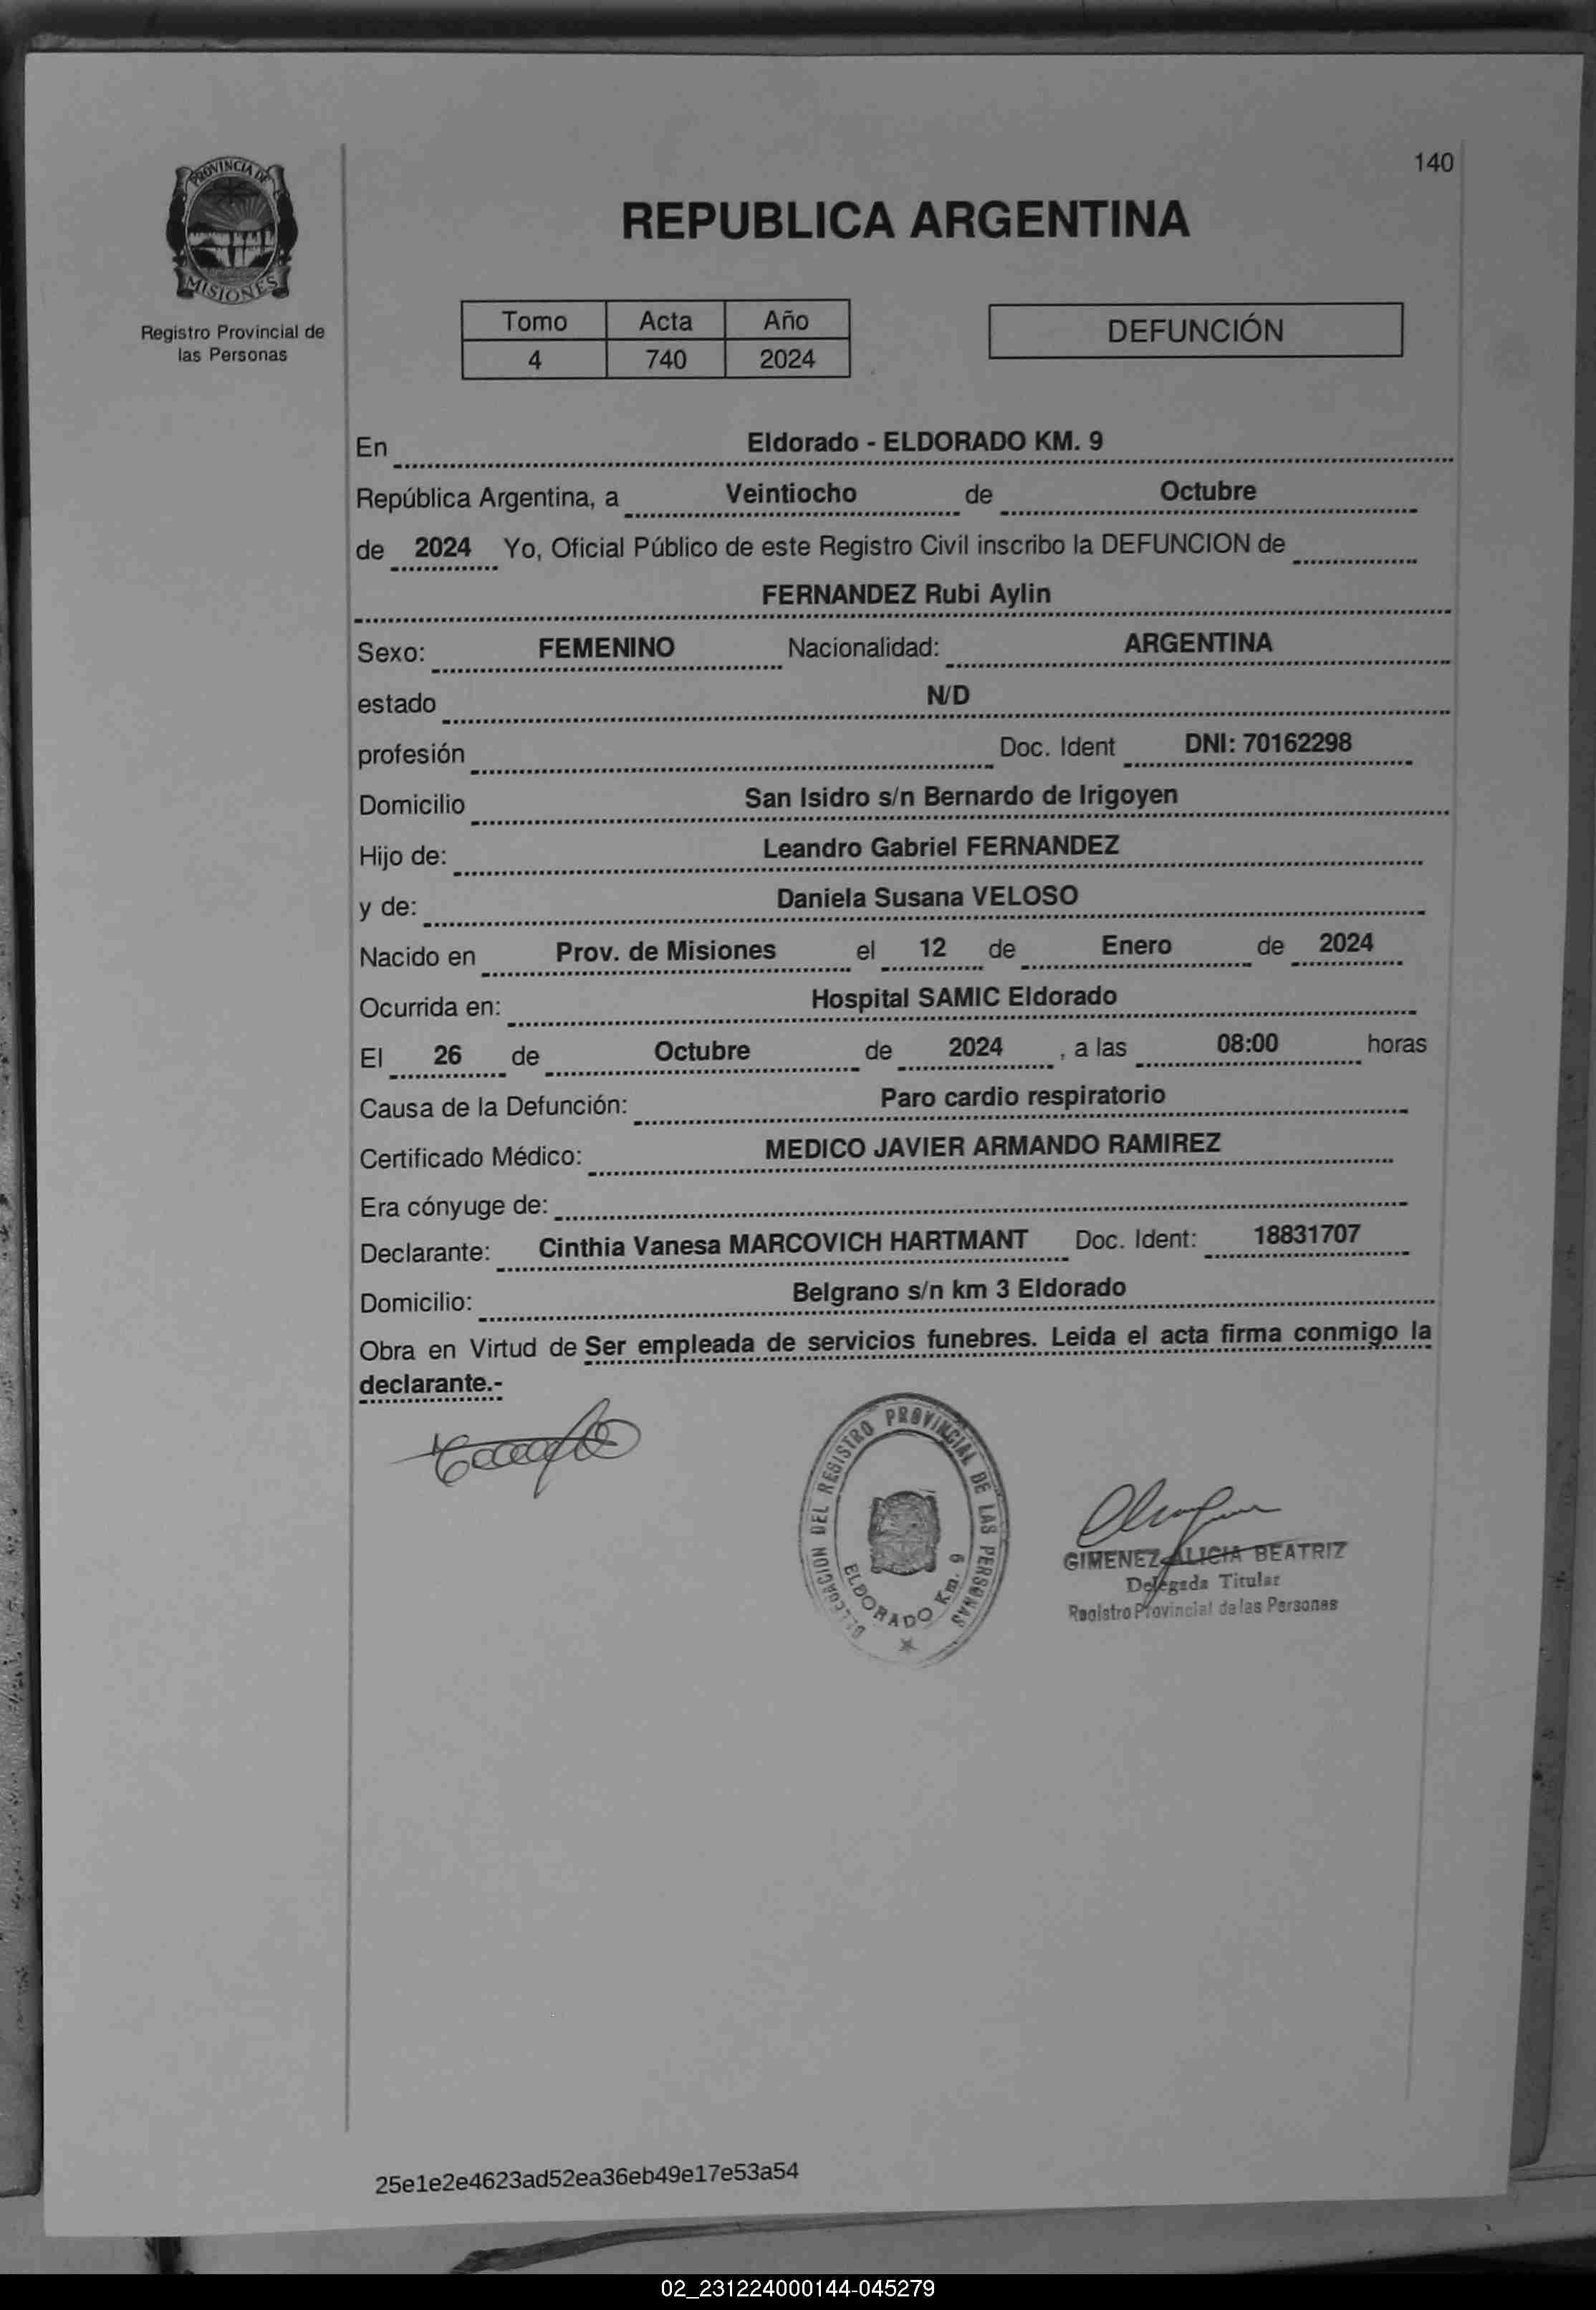 140
PROVINCIA DE
MISIONES
Registro Provincial de
las Personas
REPUBLICA ARGENTINA
Tomo Acta Año
4 740 2024
DEFUNCIÓN
En Eldorado - ELDORADO KM. 9
República Argentina, a Veintiocho de Octubre
de 2024 Yo, Oficial Público de este Registro Civil inscribo la DEFUNCION de
FERNANDEZ Rubi Aylin
Sexo: FEMENINO Nacionalidad: ARGENTINA
estado N/D
profesión Doc. Ident DNI: 70162298
Domicilio San Isidro s/n Bernardo de Irigoyen
Hijo de: Leandro Gabriel FERNANDEZ
y de: Daniela Susana VELOSO
Nacido en Prov. de Misiones el 12 de Enero de 2024
Ocurrida en: Hospital SAMIC Eldorado
El 26 de Octubre de 2024 , a las 08:00 horas
Causa de la Defunción: Paro cardio respiratorio
Certificado Médico: MEDICO JAVIER ARMANDO RAMIREZ
Era cónyuge de:
Declarante: Cinthia Vanesa MARCOVICH HARTMANT Doc. Ident: 18831707
Domicilio: Belgrano s/n km 3 Eldorado
Obra en Virtud de Ser empleada de servicios funebres. Leida el acta firma conmigo la
declarante.-
DELEGACION DEL REGISTRO PROVINCIAL DE LAS PERSONAS
ELDORADO Km. 9
GIMENEZ ALICIA BEATRIZ
Delegada Titular
Registro Provincial de las Personas
25e1e2e4623ad52ea36eb49e17e53a54
02_231224000144-045279